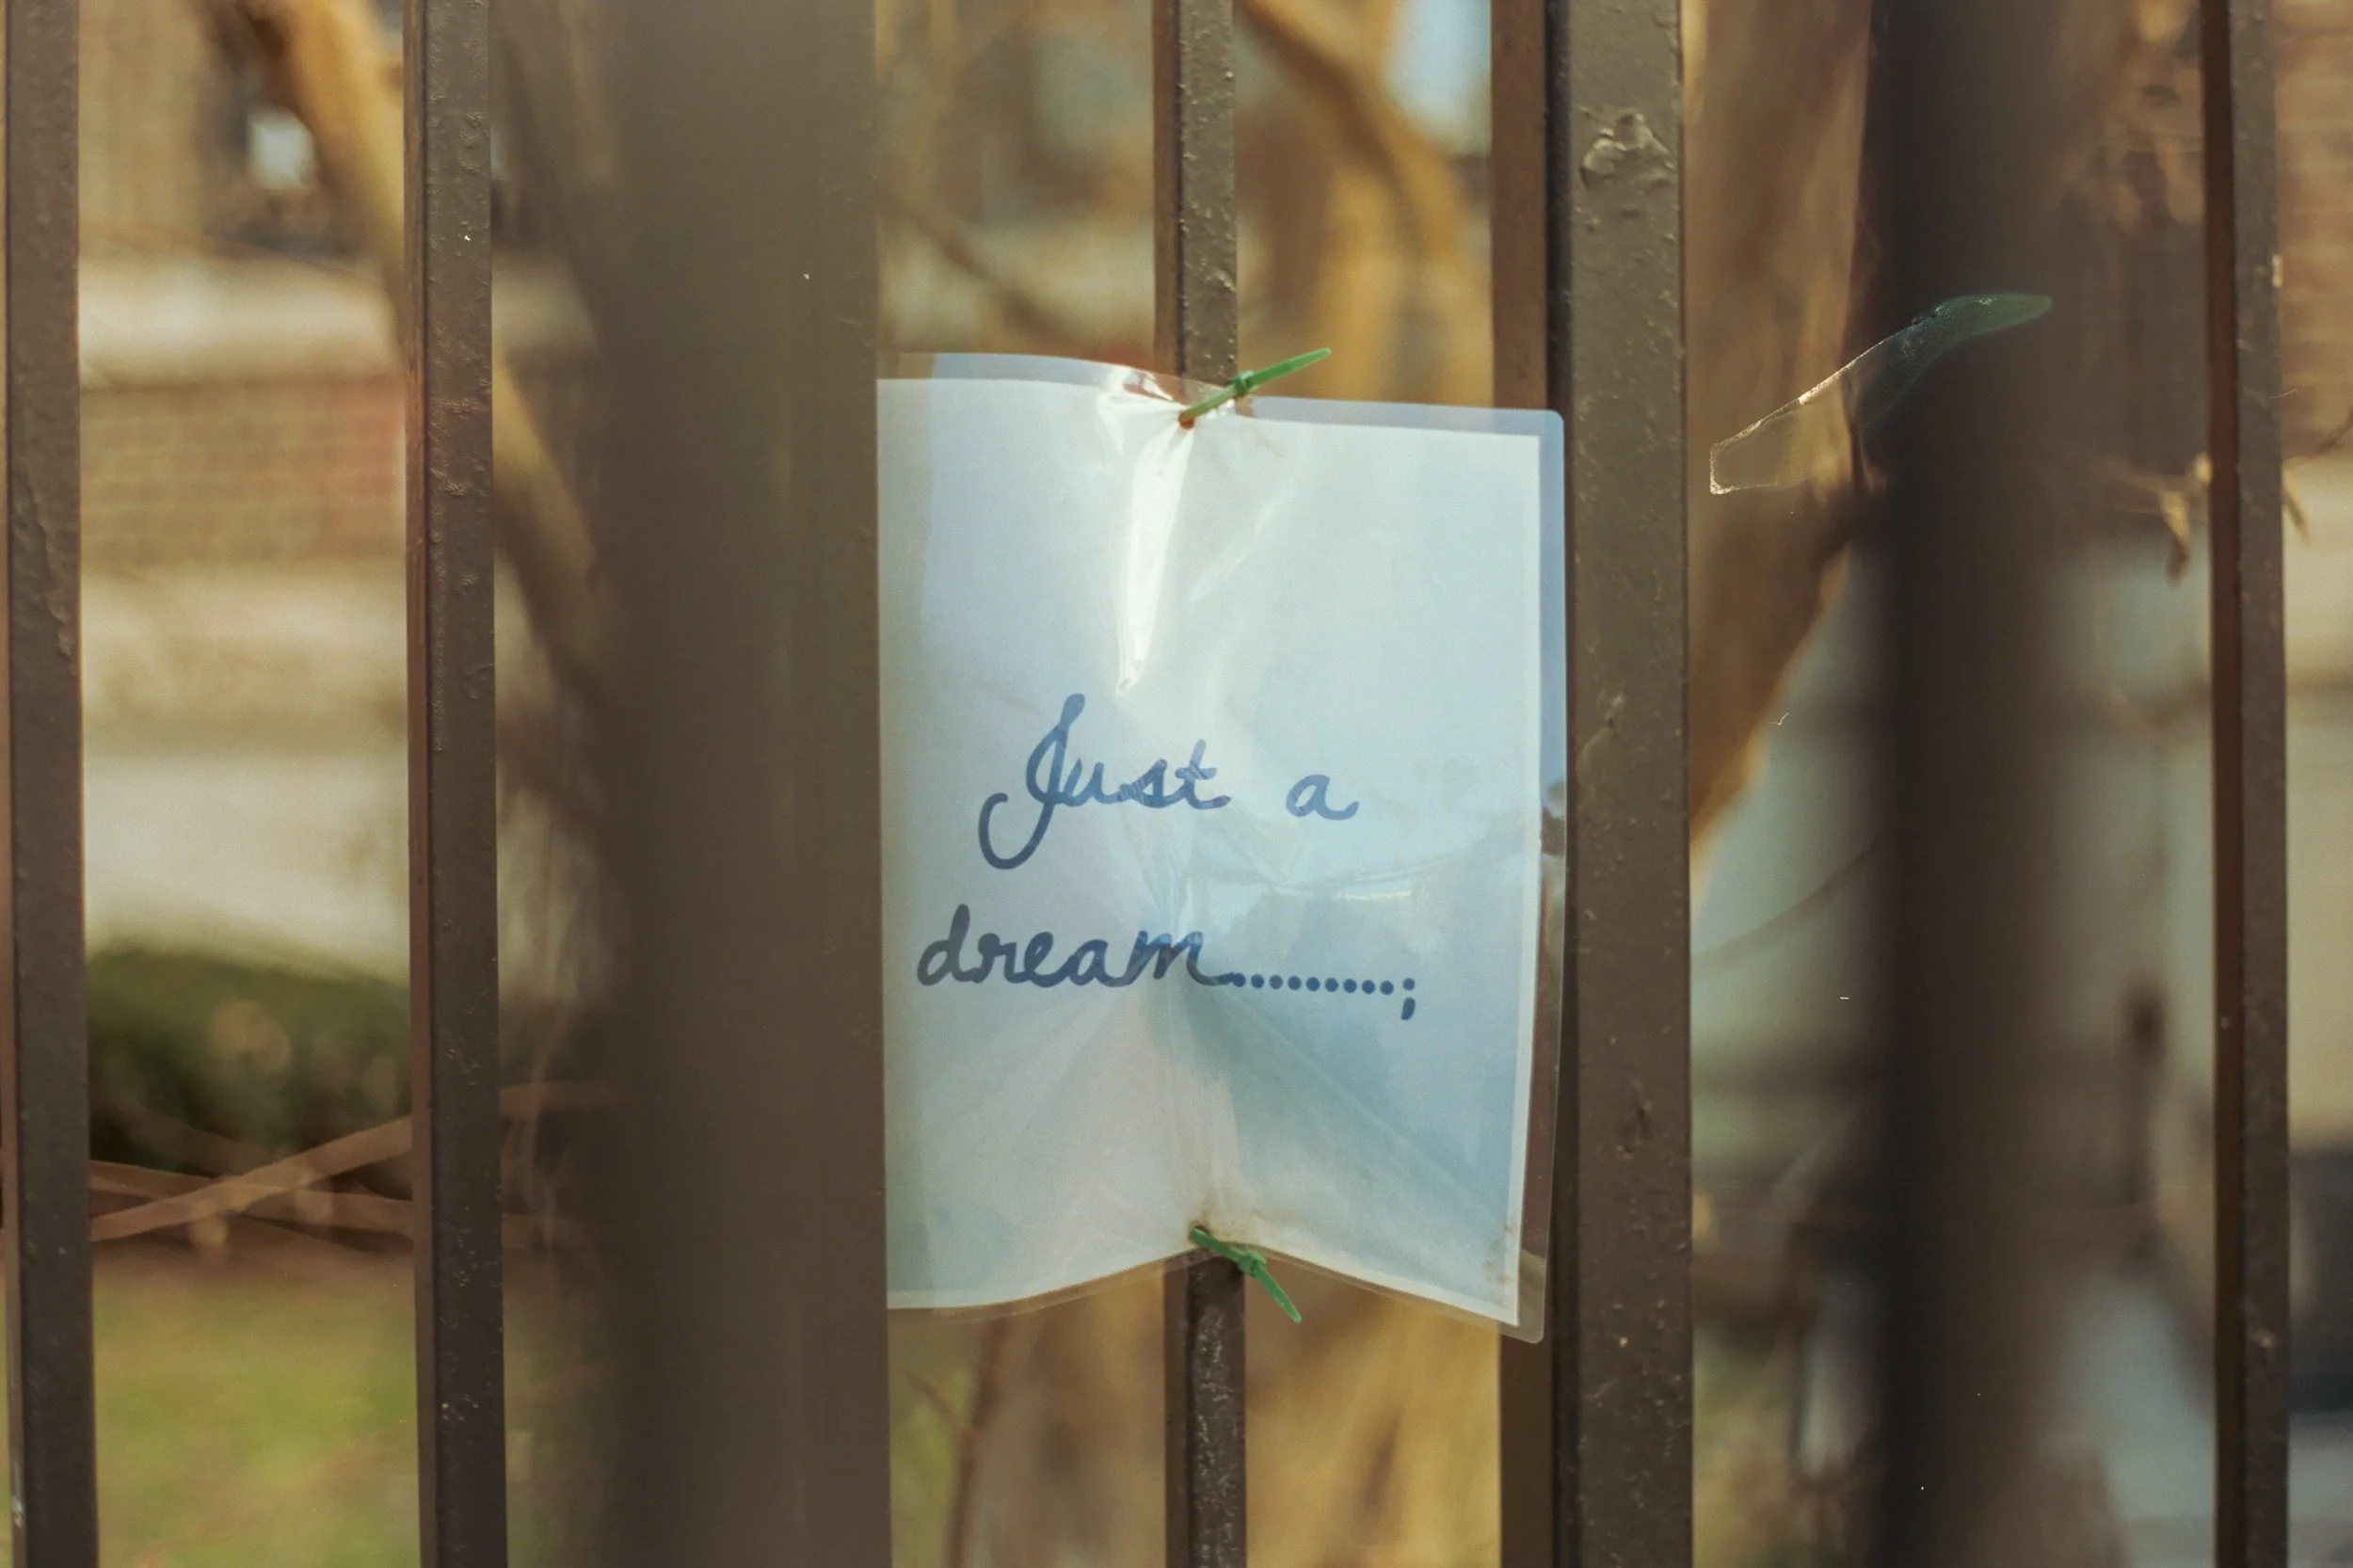 Just a
dream.........;